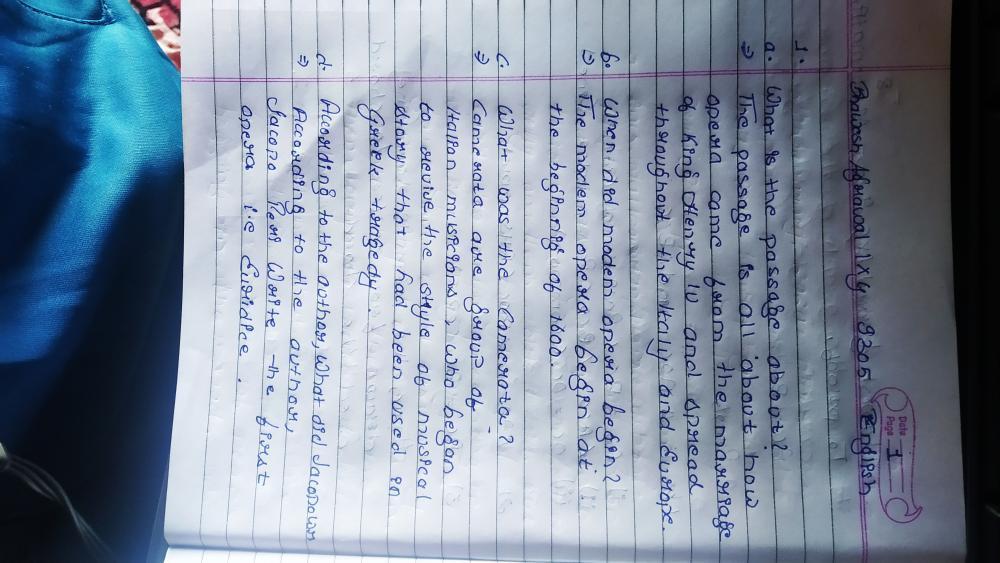 Date
Page 1
Agrawal IXy 9205 English
1.
a. What is the passage about?
⇒ The passage is all about how
opera came from the marriage
of King Henry IV and spread
throughout the Italy and Europe.
b. When did modern opera begin?
⇒ The modern opera begin at
the begining of 1600.
c. What was the Camerata?
⇒ Camerata are group of
Italian musicians, who began
to revive the style of musical
story that had been used in
Greek tragedy.
d. According to the author, what did Jacopo
⇒ According to the author,
Jacopo Peri write the first
opera i.e Euridice.